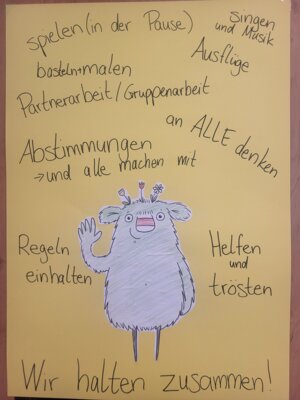 spielen (in der Pause)
singen
und Musik
basteln+malen
Ausflüge
Partnerarbeit/Gruppenarbeit
an ALLE denken
Abstimmungen
→ und alle machen mit
Regeln
einhalten
Helfen
und
trösten
Wir halten zusammen!